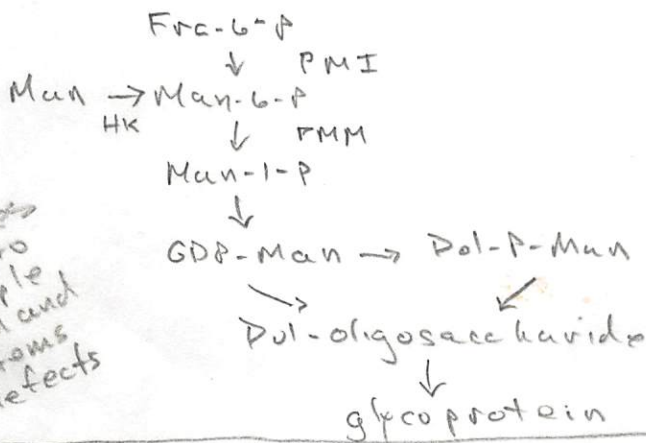 Fru-6-P
↓ PMI
Man → Man-6-P
HK ↓ PMM
Man-1-P
↓
GDP-Man → Dol-P-Man
Dol-oligosaccharide
↓
glycoprotein
and
efects